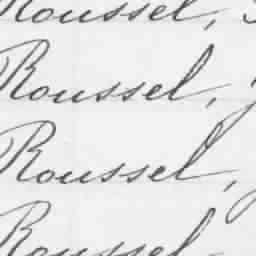 Roussel,
Roussel,
Roussel,
Roussel